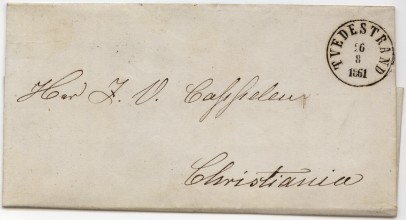 TVEDESTRAND
26
8
1861
Herr J. V. Cappelen
Christiania